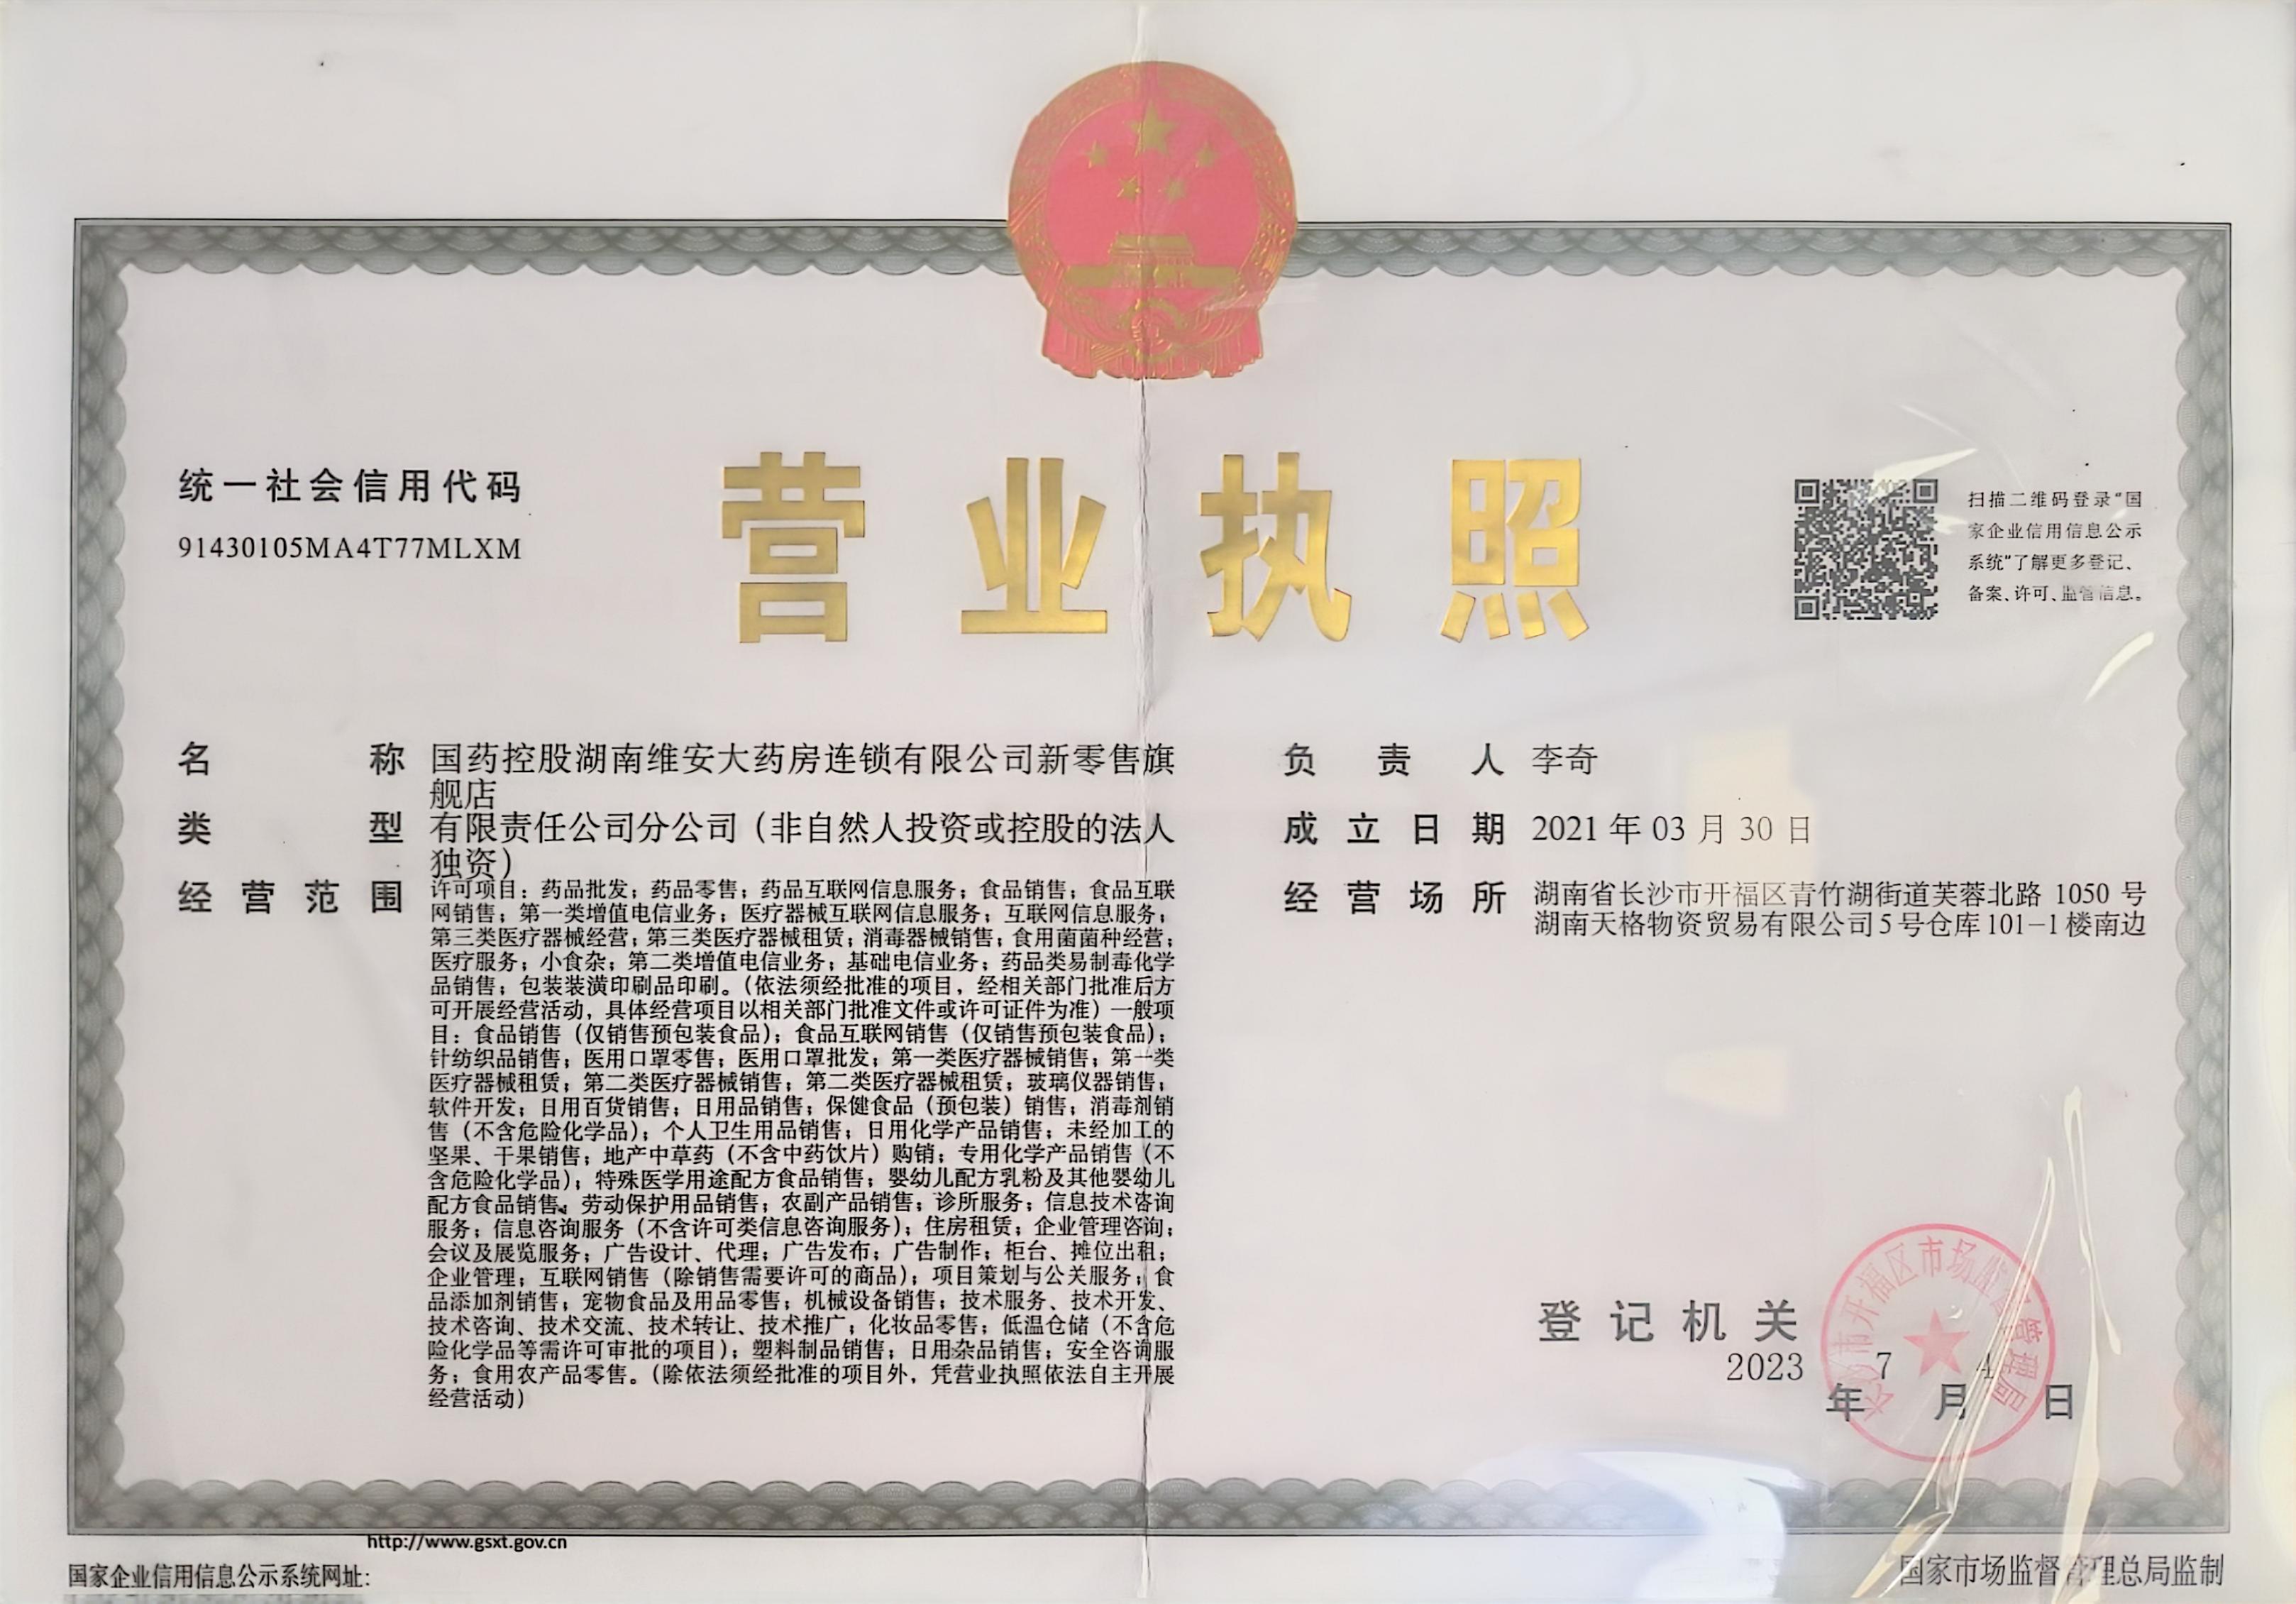 营业执照
统一社会信用代码
91430105MA4T77MLXM
扫描二维码登录“国
家企业信用信息公示
系统”了解更多登记、
备案、许可、监管信息。
名称 国药控股湖南维安大药房连锁有限公司新零售旗
舰店
类型 有限责任公司分公司（非自然人投资或控股的法人
独资）
经营范围 许可项目：药品批发；药品零售；药品互联网信息服务；食品销售；食品互联
网销售；第一类增值电信业务；医疗器械互联网信息服务；互联网信息服务；
第三类医疗器械经营；第三类医疗器械租赁；消毒器械销售；食用菌菌种经营；
医疗服务；小食杂；第二类增值电信业务；基础电信业务；药品类易制毒化学
品销售；包装装潢印刷品印刷。（依法须经批准的项目，经相关部门批准后方
可开展经营活动，具体经营项目以相关部门批准文件或许可证件为准）一般项
目：食品销售（仅销售预包装食品）；食品互联网销售（仅销售预包装食品）；
针纺织品销售；医用口罩零售；医用口罩批发；第一类医疗器械销售；第一类
医疗器械租赁；第二类医疗器械销售；第二类医疗器械租赁；玻璃仪器销售；
软件开发；日用百货销售；日用品销售；保健食品（预包装）销售；消毒剂销
售（不含危险化学品）；个人卫生用品销售；日用化学产品销售；未经加工的
坚果、干果销售；地产中草药（不含中药饮片）购销；专用化学产品销售（不
含危险化学品）；特殊医学用途配方食品销售；婴幼儿配方乳粉及其他婴幼儿
配方食品销售；劳动保护用品销售；农副产品销售；诊所服务；信息技术咨询
服务；信息咨询服务（不含许可类信息咨询服务）；住房租赁；企业管理咨询；
会议及展览服务；广告设计、代理；广告发布；广告制作；柜台、摊位出租；
企业管理；互联网销售（除销售需要许可的商品）；项目策划与公关服务；食
品添加剂销售；宠物食品及用品零售；机械设备销售；技术服务、技术开发、
技术咨询、技术交流、技术转让、技术推广；化妆品零售；低温仓储（不含危
险化学品等需许可审批的项目）；塑料制品销售；日用杂品销售；安全咨询服
务；食用农产品零售。（除依法须经批准的项目外，凭营业执照依法自主开展
经营活动）
负责人 李奇
成立日期 2021年03月30日
经营场所 湖南省长沙市开福区青竹湖街道芙蓉北路 1050 号
湖南天格物资贸易有限公司5号仓库101-1楼南边
登记机关
长沙市开福区市场监督管理局
2023年7月4日
http://www.gsxt.gov.cn
国家企业信用信息公示系统网址：
国家市场监督管理总局监制